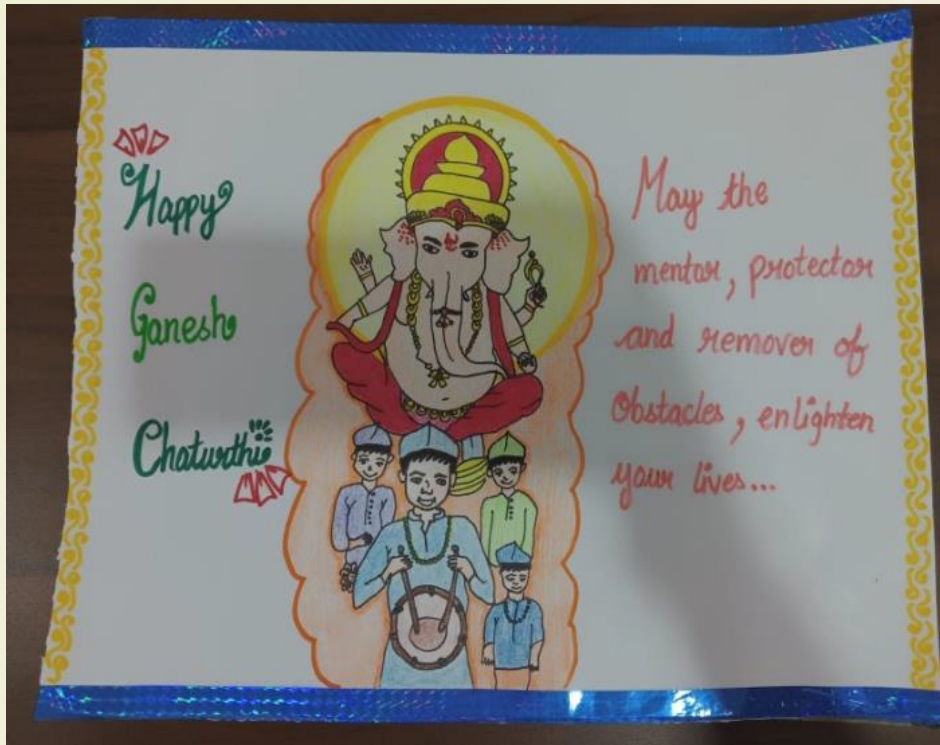 Happy
Ganesh
Chaturthi
May the
mentor, protector
and remover of
Obstacles, enlighten
your lives...